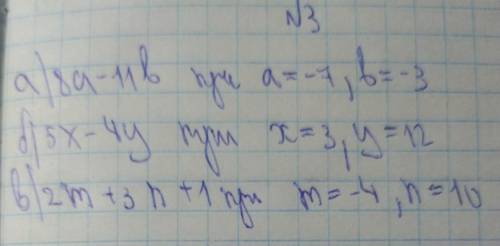 №3
а) 8a-11b при a=-7, b=-3
б) 5x-4y при x=3, y=12
в) 2m+3n+1 при m=-4, n=10